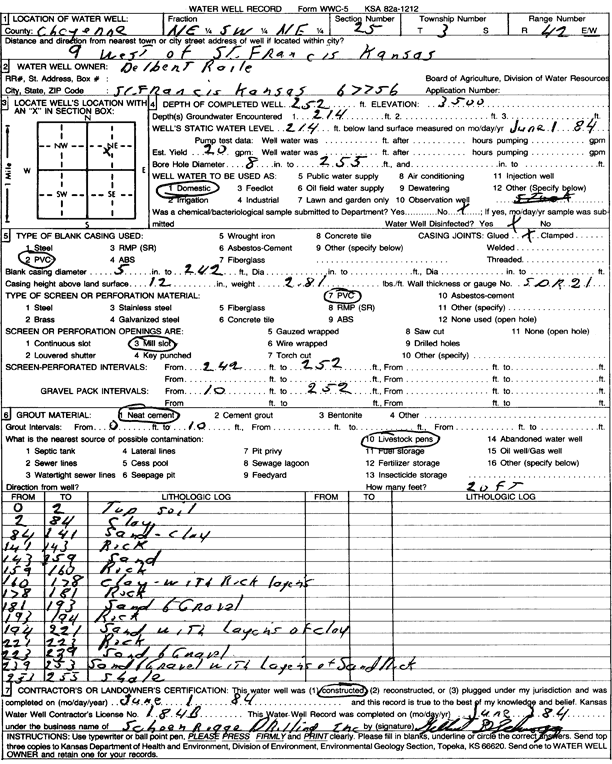 WATER WELL RECORD Form WWC-5 KSA 82a-1212
1 LOCATION OF WATER WELL: Fraction Section Number Township Number Range Number
County: Cheyenne NE ¼ SW ¼ NE ¼ 25 T 3 S R 42 E/W
Distance and direction from nearest town or city street address of well if located within city?
9 West of St. Francis Kansas
2 WATER WELL OWNER: Delbert Raile
RR#, St. Address, Box # : Board of Agriculture, Division of Water Resources
City, State, ZIP Code : St. Francis Kansas 67756 Application Number:
3 LOCATE WELL'S LOCATION WITH AN "X" IN SECTION BOX:
N
NW NE
W E
SW SE
S
1 Mile
4 DEPTH OF COMPLETED WELL 252 ft. ELEVATION: 3500
Depth(s) Groundwater Encountered 1. 214 ft. 2. ft. 3. ft.
WELL'S STATIC WATER LEVEL 214 ft. below land surface measured on mo/day/yr June 1 84
Pump test data: Well water was ft. after hours pumping gpm
Est. Yield 20 gpm: Well water was ft. after hours pumping gpm
Bore Hole Diameter 8 in. to 255 ft., and in. to ft.
WELL WATER TO BE USED AS: 5 Public water supply 8 Air conditioning 11 Injection well
1 Domestic 3 Feedlot 6 Oil field water supply 9 Dewatering 12 Other (Specify below)
2 Irrigation 4 Industrial 7 Lawn and garden only 10 Observation well
Was a chemical/bacteriological sample submitted to Department? Yes No X ; If yes, mo/day/yr sample was submitted
Water Well Disinfected? Yes X No
5 TYPE OF BLANK CASING USED: 5 Wrought iron 8 Concrete tile CASING JOINTS: Glued X Clamped
1 Steel 3 RMP (SR) 6 Asbestos-Cement 9 Other (specify below) Welded
2 PVC 4 ABS 7 Fiberglass Threaded
Blank casing diameter 5 in. to 242 ft., Dia in. to ft., Dia in. to ft.
Casing height above land surface 12 in., weight 2.81 lbs./ft. Wall thickness or gauge No. SDR 21
TYPE OF SCREEN OR PERFORATION MATERIAL: 7 PVC 10 Asbestos-cement
1 Steel 3 Stainless steel 5 Fiberglass 8 RMP (SR) 11 Other (specify)
2 Brass 4 Galvanized steel 6 Concrete tile 9 ABS 12 None used (open hole)
SCREEN OR PERFORATION OPENINGS ARE: 5 Gauzed wrapped 8 Saw cut 11 None (open hole)
1 Continuous slot 3 Mill slot 6 Wire wrapped 9 Drilled holes
2 Louvered shutter 4 Key punched 7 Torch cut 10 Other (specify)
SCREEN-PERFORATED INTERVALS: From 242 ft. to 252 ft., From ft. to ft.
From ft. to ft., From ft. to ft.
GRAVEL PACK INTERVALS: From 10 ft. to 252 ft., From ft. to ft.
From ft. to ft., From ft. to ft.
6 GROUT MATERIAL: 1 Neat cement 2 Cement grout 3 Bentonite 4 Other
Grout Intervals: From 0 ft. to 10 ft., From ft. to ft., From ft. to ft.
What is the nearest source of possible contamination: 10 Livestock pens 14 Abandoned water well
1 Septic tank 4 Lateral lines 7 Pit privy 11 Fuel storage 15 Oil well/Gas well
2 Sewer lines 5 Cess pool 8 Sewage lagoon 12 Fertilizer storage 16 Other (specify below)
3 Watertight sewer lines 6 Seepage pit 9 Feedyard 13 Insecticide storage
Direction from well? How many feet? 20 FT
FROM TO LITHOLOGIC LOG FROM TO LITHOLOGIC LOG
0 2 Top soil
2 84 Clay
84 141 Sand-clay
141 143 Rick
143 159 Sand
159 160 Rick
160 178 Clay-with Rick layers
178 181 Rock
181 193 Sand & Gravel
193 194 Rick
194 221 Sand with layers of clay
221 223 Rick
223 239 Sand & Gravel
239 253 Sand/Gravel with layers of Sand Rick
251 255 Shale
7 CONTRACTOR'S OR LANDOWNER'S CERTIFICATION: This water well was (1) constructed, (2) reconstructed, or (3) plugged under my jurisdiction and was
completed on (mo/day/year) June 1 84 and this record is true to the best of my knowledge and belief. Kansas
Water Well Contractor's License No. 184B This Water Well Record was completed on (mo/day/yr) June 2 84
under the business name of Drilling Inc by (signature)
INSTRUCTIONS: Use typewriter or ball point pen, PLEASE PRESS FIRMLY and PRINT clearly. Please fill in blanks, underline or circle the correct answers. Send top
three copies to Kansas Department of Health and Environment, Division of Environment, Environmental Geology Section, Topeka, KS 66620. Send one to WATER WELL
OWNER and retain one for your records.